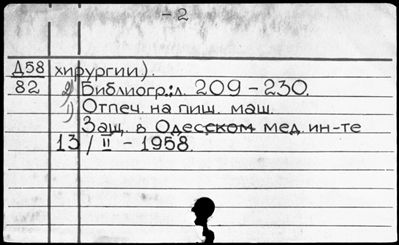 - 2
Д58 хирургии).
82 2) Библиогр.: л. 209-230.
1) Отпеч. на пиш. маш.
Защ. в Одесском мед. ин-те
13/II - 1958.